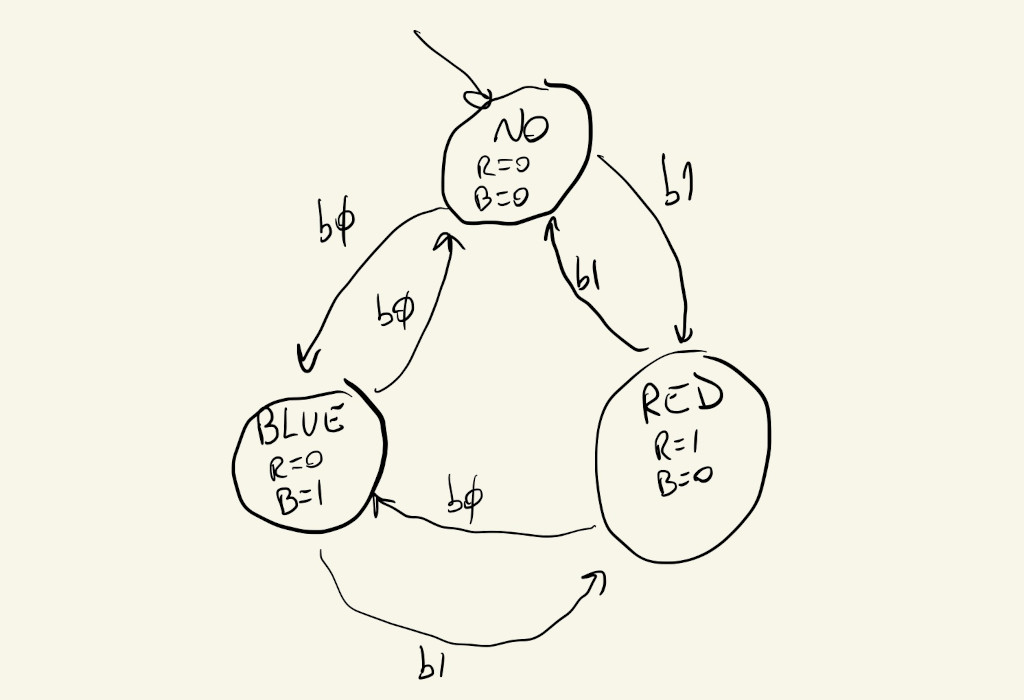 NO
R=0
B=0
b1
bϕ
b1
bϕ
BLUE
R=0
B=1
RED
R=1
B=0
bϕ
b1